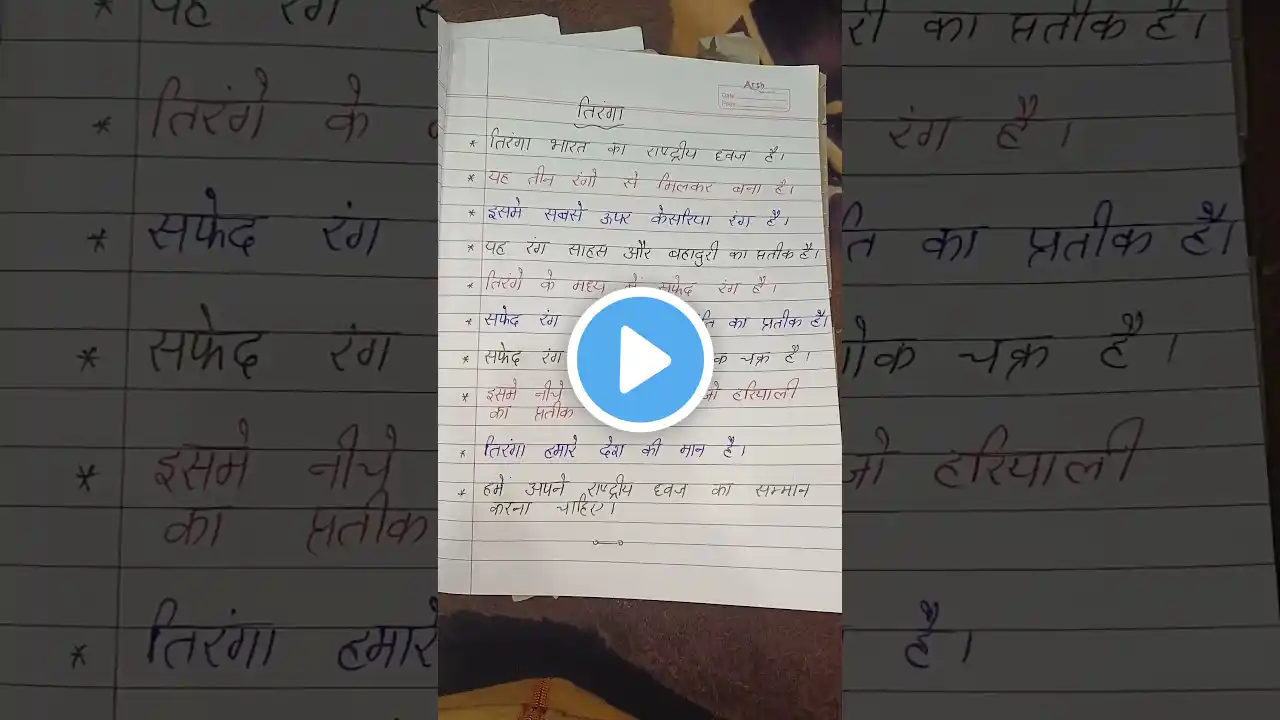 Arsh
Date
Page
तिरंगा
* तिरंगा भारत का राष्ट्रीय ध्वज है।
* यह तीन रंगो से मिलकर बना है।
* इसमे सबसे ऊपर केसरिया रंग है।
* यह रंग साहस और बहादुरी का प्रतीक है।
* तिरंगे के मध्य में सफेद रंग है।
* सफेद रंग का प्रतीक है।
* सफेद रंग चक्र है।
* इसमे नीचे जो हरियाली
का प्रतीक
* तिरंगा हमारे देश की मान है।
* हमें अपने राष्ट्रीय ध्वज का सम्मान
करना चाहिए।